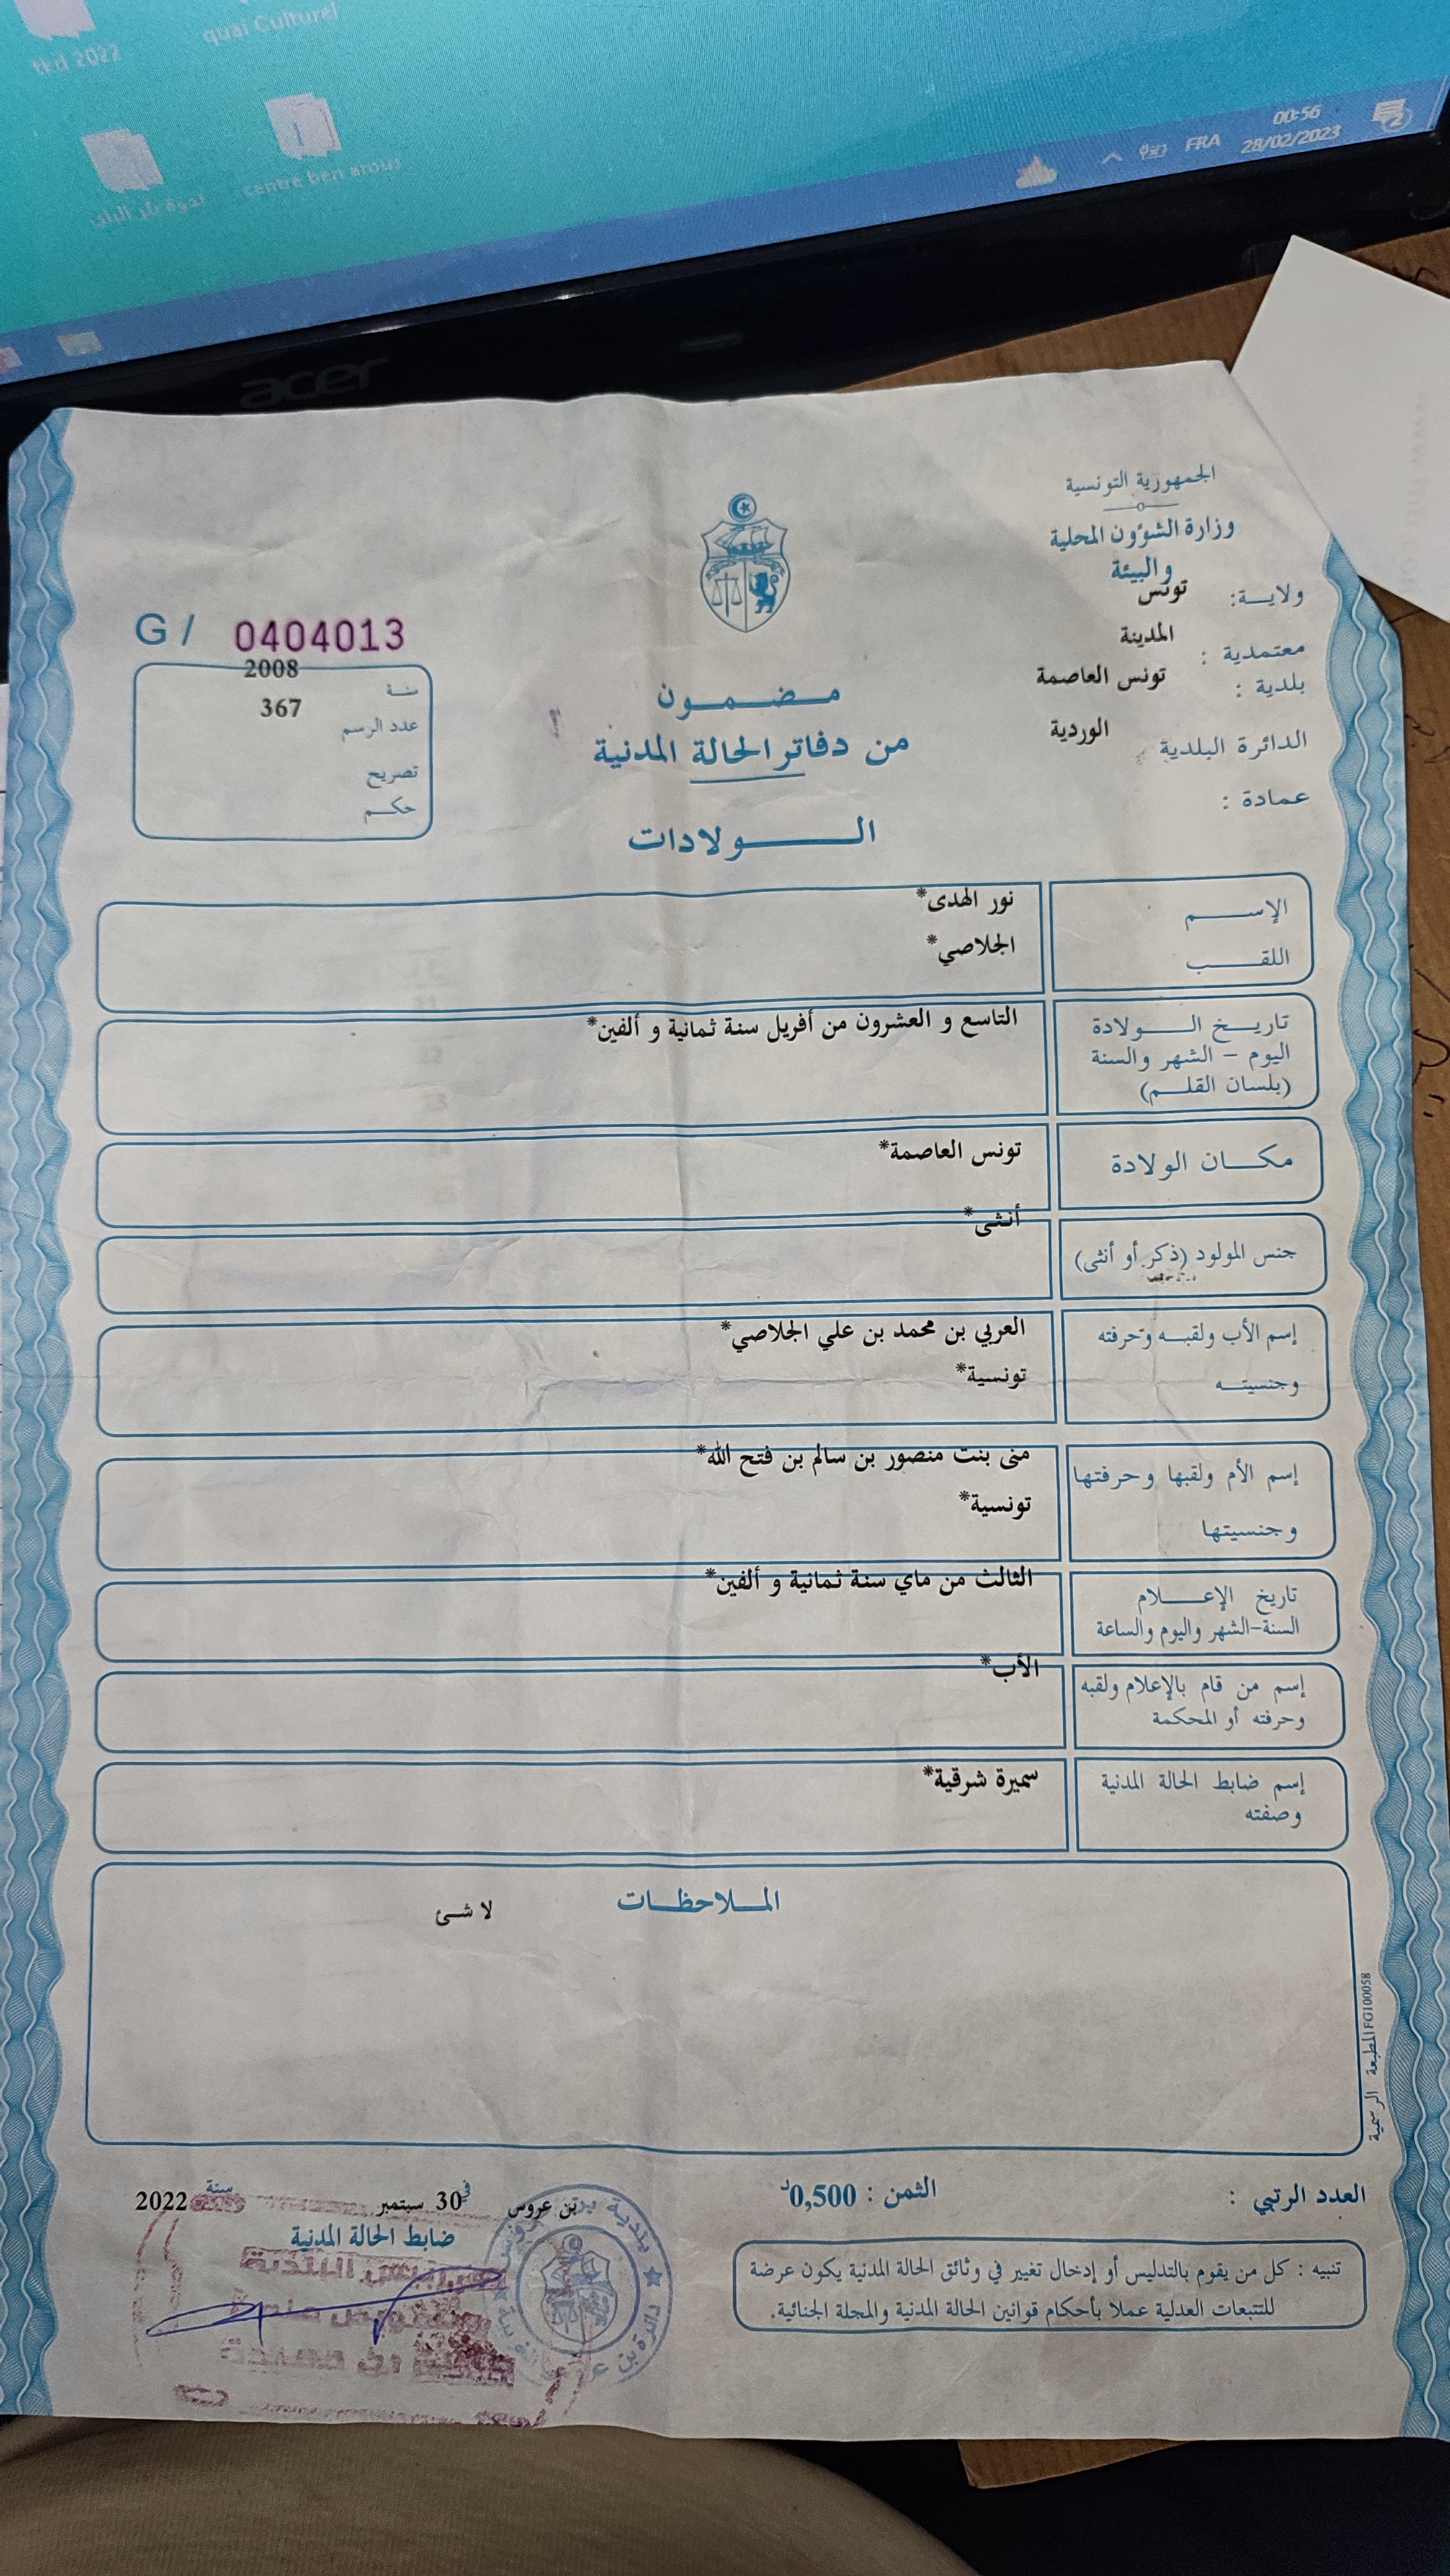 tkd 2022
quai Culturel
centre ben arous
FRA
00:56
28/02/2023
2
acer
الجمهورية التونسية
وزارة الشؤون المحلية
والبيئة
ولايـــة: تونس
معتمدية : المدينة
بلدية : تونس العاصمة
الدائرة البلدية الوردية
عمادة :
G / 0404013
سنـة 2008
عدد الرسم 367
تصريح
حكـم
مـضـمـون
من دفاتر الحالة المدنية
الـــولادات
الإســـم نور الهدى*
اللقــب الجلاصي*
تاريــخ الـــولادة التاسع و العشرون من أفريل سنة ثمانية و ألفين*
اليوم - الشهر والسنة
(بلسان القلــم)
مكــان الولادة تونس العاصمة*
جنس المولود (ذكر أو أنثى) أنثى*
إسم الأب ولقبــه وحرفته العربي بن محمد بن علي الجلاصي*
وجنسيتــه تونسية*
إسم الأم ولقبها وحرفتها منى بنت منصور بن سالم بن فتح الله*
وجنسيتها تونسية*
تاريخ الإعــلام الثالث من ماي سنة ثمانية و ألفين*
السنة-الشهر واليوم والساعة
إسم من قام بالإعلام ولقبه الأب*
وحرفته أو المحكمة
إسم ضابط الحالة المدنية سميرة شرقية*
وصفته
المـلاحظــات
لا شئ
المطبعة الرسمية FG100058
العدد الرتبي :
الثمن : 0,500د
بن عروس في 30 سبتمبر سنة 2022
ضابط الحالة المدنية
تنبيه : كل من يقوم بالتدليس أو إدخال تغيير في وثائق الحالة المدنية يكون عرضة
للتتبعات العدلية عملا بأحكام قوانين الحالة المدنية والمجلة الجنائية.